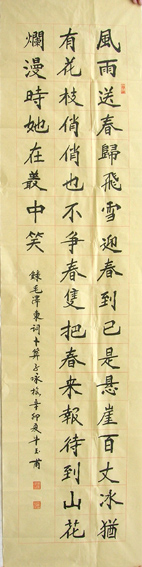 風雨送春歸飛雪迎春到已是悬崖百丈冰猶
有花枝俏俏也不争春隻把春来報待到山花
爛漫時她在叢中笑
錄毛澤東词卜算子咏梅辛卯夏